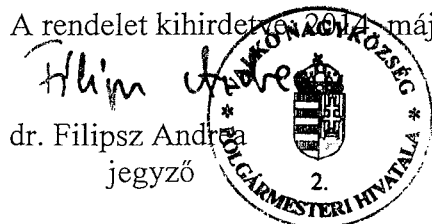 A rendelet kihirdetve: 2014. máj
Filipsz Andrea
dr. Filipsz Andrea
jegyző
VALKÓ NAGYKÖZSÉG
* POLGÁRMESTERI HIVATALA *
2.